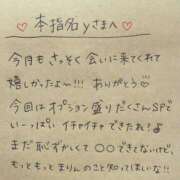 ♡本指名yさまへ♡
今月もさっそく会いに来てくれて
嬉しかったよ〜!!! ありがとう♡
今回はオプション盛りだくさんSPで
い〜っぱい イチャイチャできたね♪
まだ恥ずかしくて 〇〇できてないけど、
もっともっと まりんのこと知ってほしいな!!